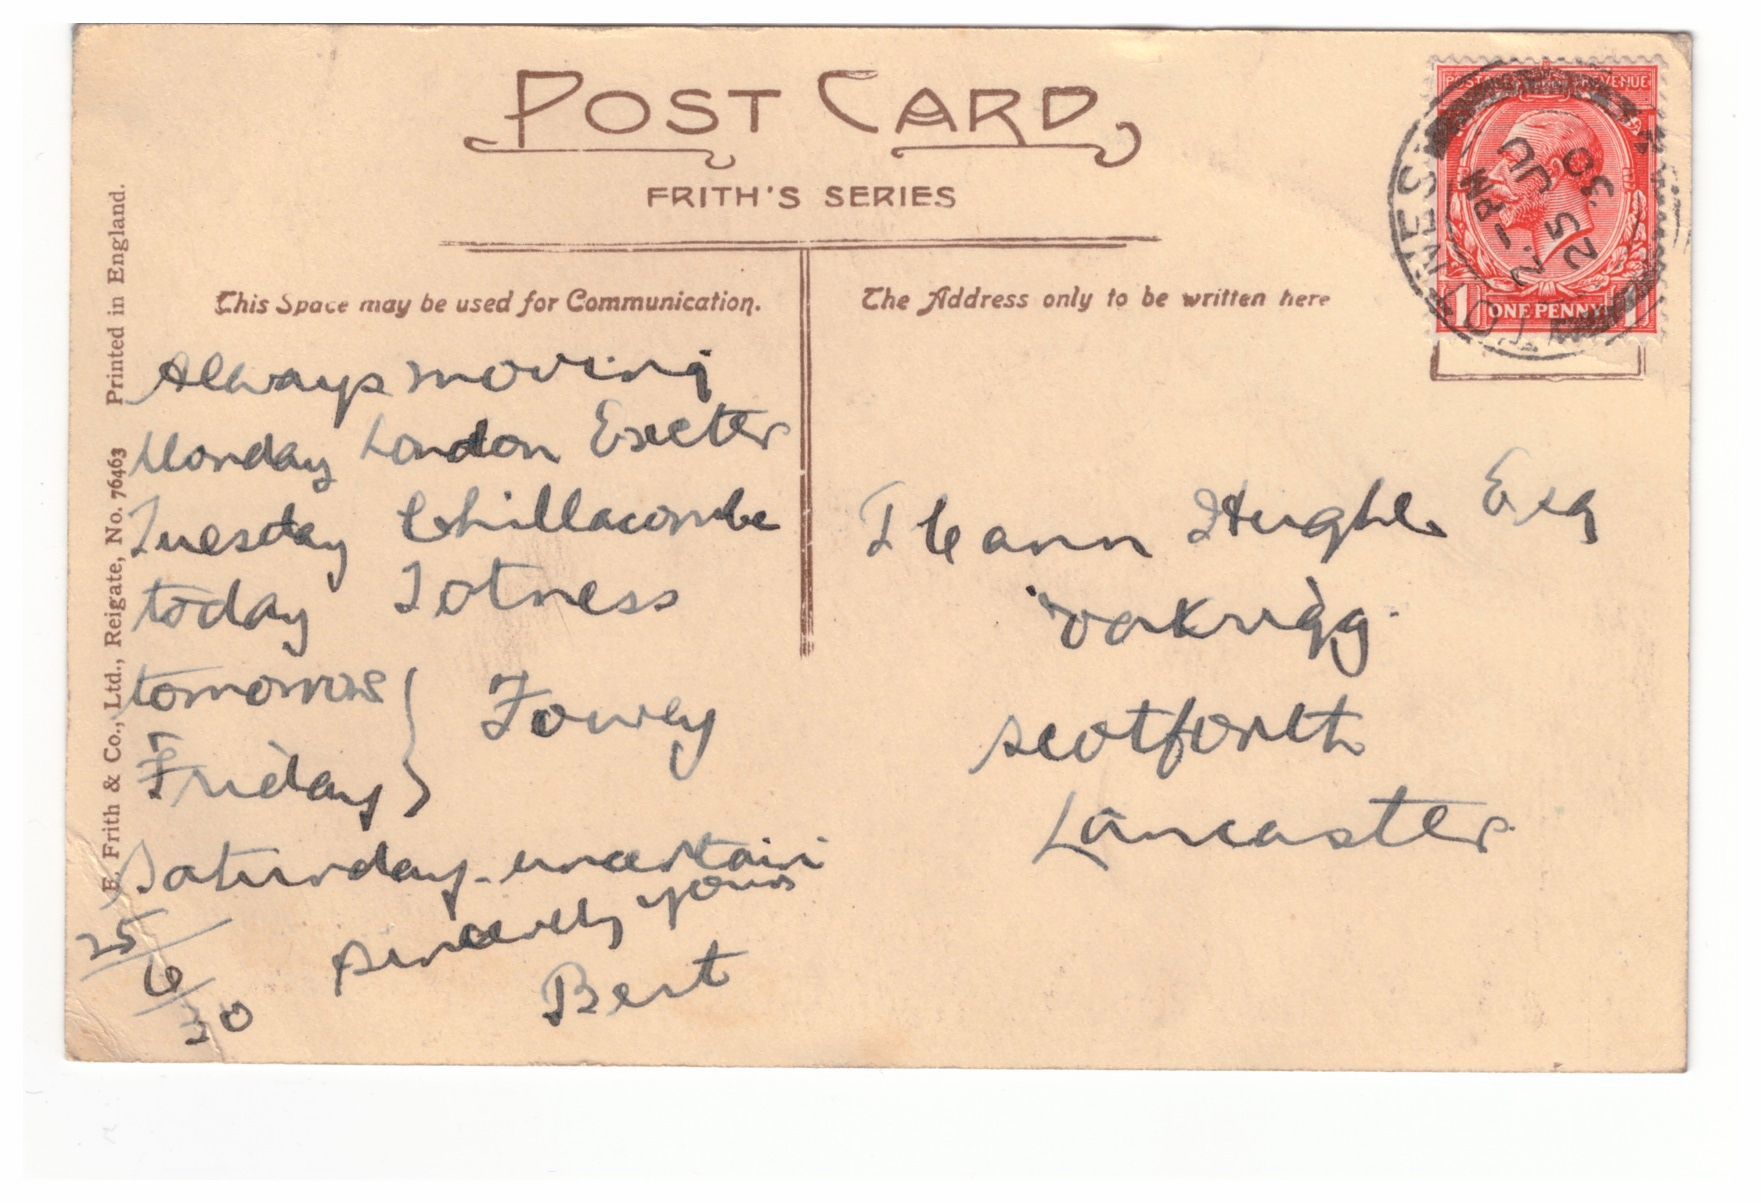 POST CARD
FRITH'S SERIES
This Space may be used for Communication.
The Address only to be written here
F. Frith & Co., Ltd., Reigate, No. 76463 Printed in England.
Always moving
Monday London Exeter
Tuesday Chillacombe
today Totness
tomorrow } Fowey
Friday
Saturday - uncertain
sincerely yours
Bert
25/6/30
T Cann Hughes Esq
Oakrigg
Scotforth
Lancaster
POSTAGE REVENUE
1 ONE PENNY 1
TOTNES
2. - PM
25 JU
30